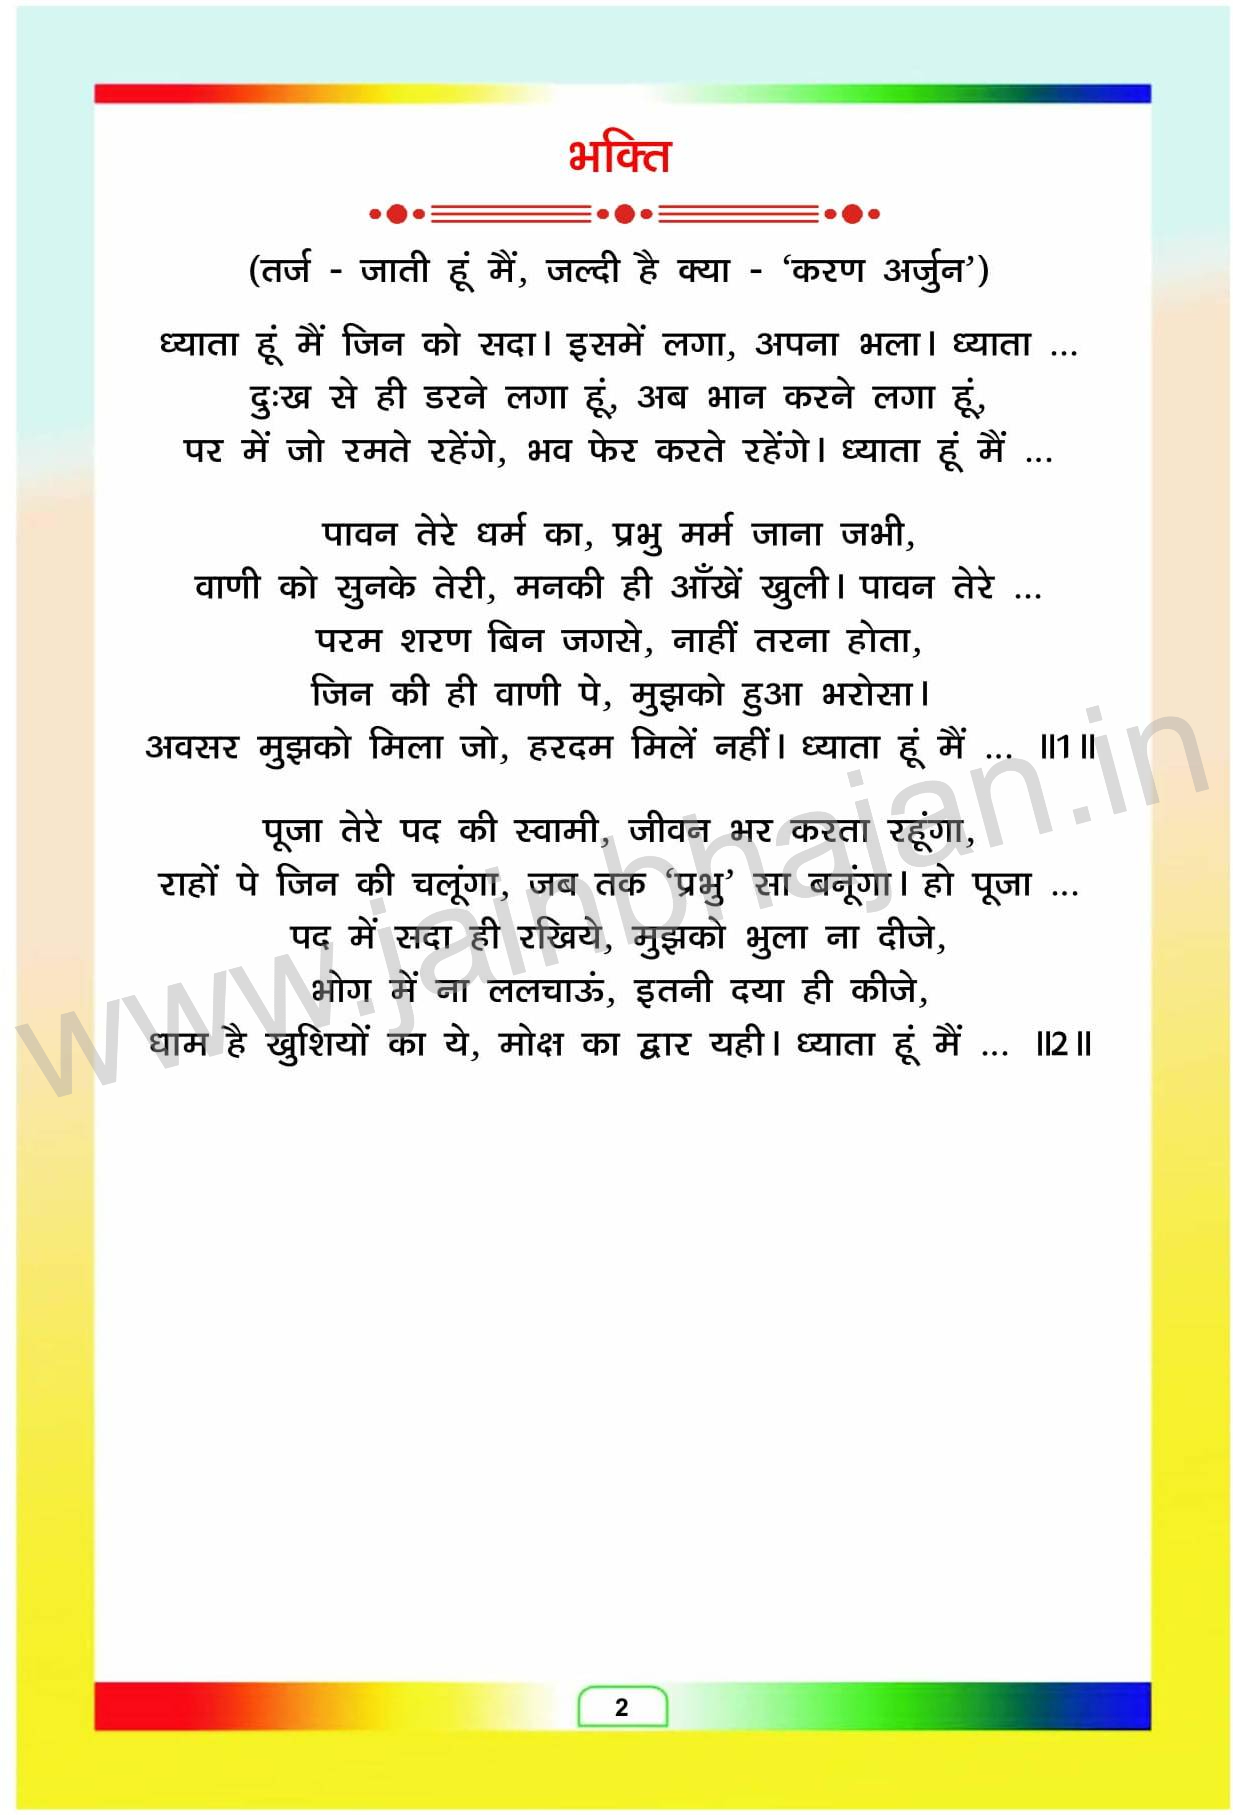 भक्ति
(तर्ज - जाती हूं मैं, जल्दी है क्या - ‘करण अर्जुन’)
ध्याता हूं मैं जिन को सदा। इसमें लगा, अपना भला। ध्याता ...
दुःख से ही डरने लगा हूं, अब भान करने लगा हूं,
पर में जो रमते रहेंगे, भव फेर करते रहेंगे। ध्याता हूं मैं ...
पावन तेरे धर्म का, प्रभु मर्म जाना जभी,
वाणी को सुनके तेरी, मनकी ही आँखें खुली। पावन तेरे ...
परम शरण बिन जगसे, नाहीं तरना होता,
जिन की ही वाणी पे, मुझको हुआ भरोसा।
अवसर मुझको मिला जो, हरदम मिलें नहीं। ध्याता हूं मैं ... ॥1॥
पूजा तेरे पद की स्वामी, जीवन भर करता रहूंगा,
राहों पे जिन की चलूंगा, जब तक ‘प्रभु’ सा बनूंगा। हो पूजा ...
पद में सदा ही रखिये, मुझको भुला ना दीजे,
भोग में ना ललचाऊं, इतनी दया ही कीजे,
धाम है खुशियों का ये, मोक्ष का द्वार यही। ध्याता हूं मैं ... ॥2॥
www.jainbhajan.in
2